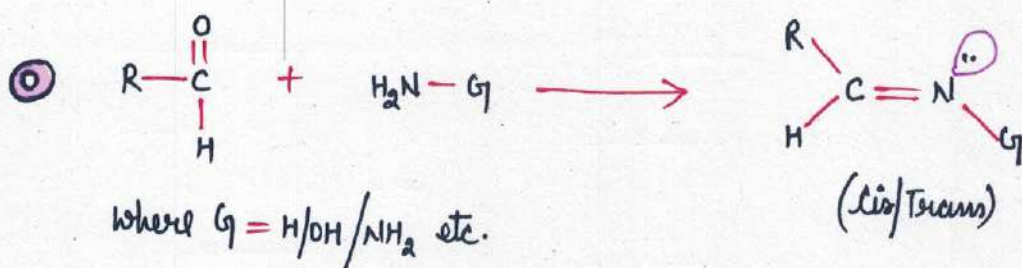 O
R—C—H + H₂N—G → R H C=N G
O
where G = H/OH/NH₂ etc.
(Cis/Trans)